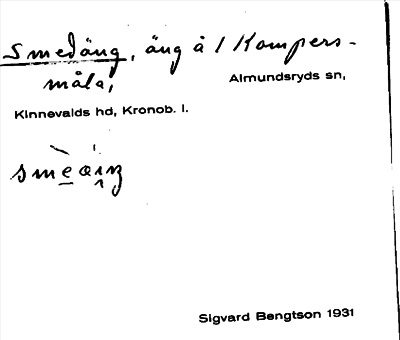 Smedäng, äng å 1 Kampers-
måla, Almundsryds sn,
Kinnevalds hd, Kronob. l.
Sigvard Bengtson 1931